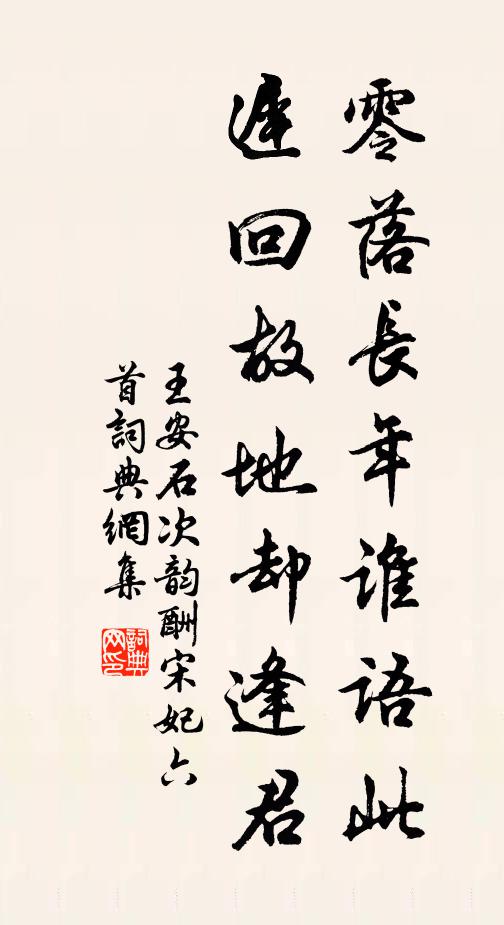 零落長年誰語此
遲回故地却逢君
王安石次韵酬宋妃六
首詞典網集
詞典
网印